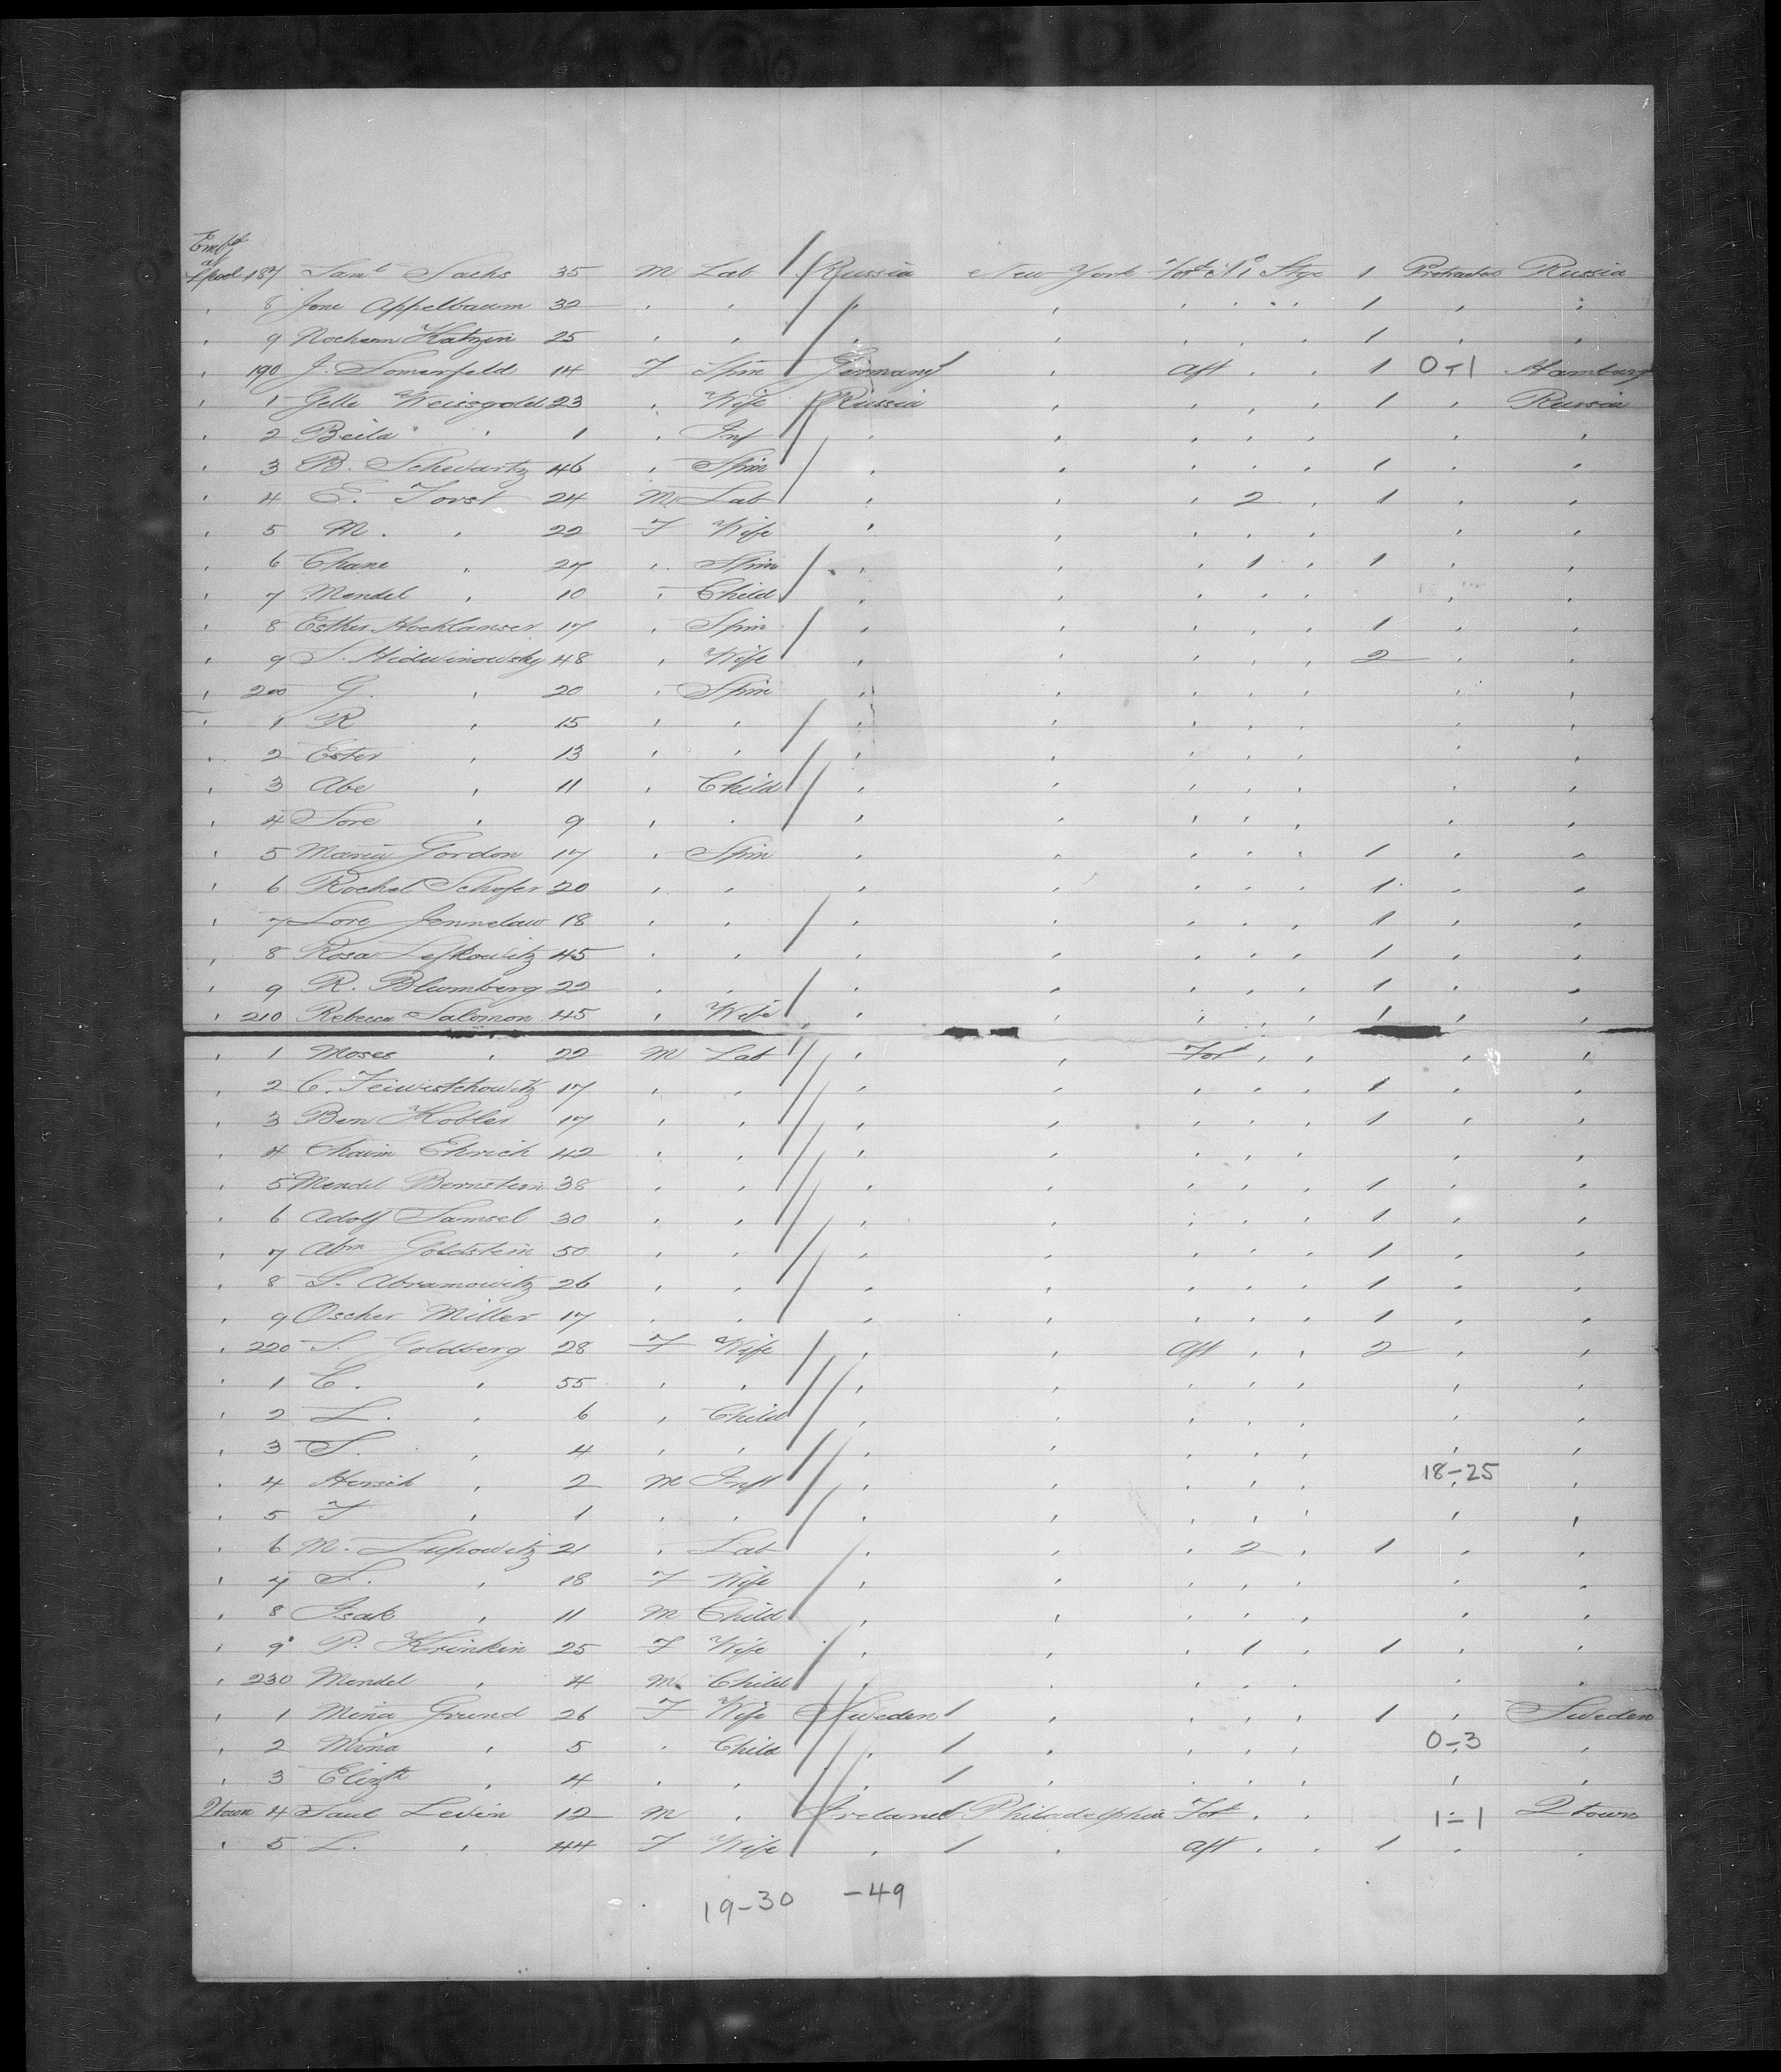 Emb'd
at
L'pool 187 Saml Sachs 35 M Lab Russia New York For'd No 1 Stge 1 Protracted Russia
" 8 Jone Appelbaum 32 " " " " " " " 1 " "
" 9 Nochem Katzin 25 " " " " " " " 1 " "
" 190 J. Somerfeld 14 F Spin Germany 1 " Aft " " 1 0-1 Hamburg
" 1 Gelle Weissgold 23 " Wife Russia " " " " 1 " Russia
" 2 Beila " 1 " Inf " " " " " " "
" 3 B. Schwartz 46 " Spin " " " " " 1 " "
" 4 E. Forst 24 M Lab " " " 2 " 1 " "
" 5 M. " 22 F Wife " " " " " " "
" 6 Chane " 27 " Spin " " " 1 " 1 " "
" 7 Mendel " 10 " Child " " " " " " "
" 8 Esther Hocklanser 17 " Spin " " " " " 1 " "
" 9 S. Hidwinowsky 48 " Wife " " " " " 2 " "
" 200 G. " 20 " Spin " " " " " " "
" 1 R " 15 " " " " " " " " "
" 2 Ester " 13 " " " " " " " " "
" 3 Abe " 11 " Child " " " " " " "
" 4 Sore " 9 " " " " " " " " "
" 5 Maria Gordon 17 " Spin " " " " " 1 " "
" 6 Rochel Schofer 20 " " " " " " " 1 " "
" 7 Sore Jennelaw 18 " " " " " " " 1 " "
" 8 Rosa Lefkowitz 45 " " " " " " " 1 " "
" 9 R. Blumberg 22 " " " " " " " 1 " "
" 210 Rebecca Salomon 45 " Wife " " " " " 1 " "
" 1 Moses " 22 M Lab " " For'd " " " "
" 2 C. Feiwistchowitz 17 " " " " " " " 1 " "
" 3 Ben Kobler 17 " " " " " " " 1 " "
" 4 Chaim Ehrich 42 " " " " " " " " "
" 5 Mendel Bernstein 38 " " " " " " " 1 " "
" 6 Adolf Samsel 30 " " " " " " " 1 " "
" 7 Abm Goldstein 50 " " " " " " " 1 " "
" 8 S. Abramowitz 26 " " " " " " " 1 " "
" 9 Oscher Miller 17 " " " " " " " 1 " "
" 220 S. Goldberg 28 F Wife " " Aft " " 2 " "
" 1 C. " 55 " " " " " " " " "
" 2 L. " 6 " Child " " " " " " "
" 3 S. " 4 " " " " " " " " "
" 4 Hersch " 2 M Inft " " " " " 18-25 "
" 5 F " 1 " " " " " " " " "
" 6 M. Lupowitz 21 " Lab " " " 2 " 1 " "
" 7 S. " 18 F Wife " " " " " " "
" 8 Isak " 11 M Child " " " " " " "
" 9 P. Krinkin 25 F Wife " " " 1 " 1 " "
" 230 Mendel " 4 M Child " " " " " " "
" 1 Mina Grund 26 F Wife Sweden 1 " " " " 1 " Sweden
" 2 Mina " 5 " Child " 1 " " " " 0-3 "
" 3 Elizth " 4 " " " 1 " " " " " "
Qtown 4 Saul Levin 12 M " Ireland Philadelphia For'd " " 1-1 Qtown
" 5 L. " 44 F Wife " 1 " Aft " " 1 " "
19-30 -49